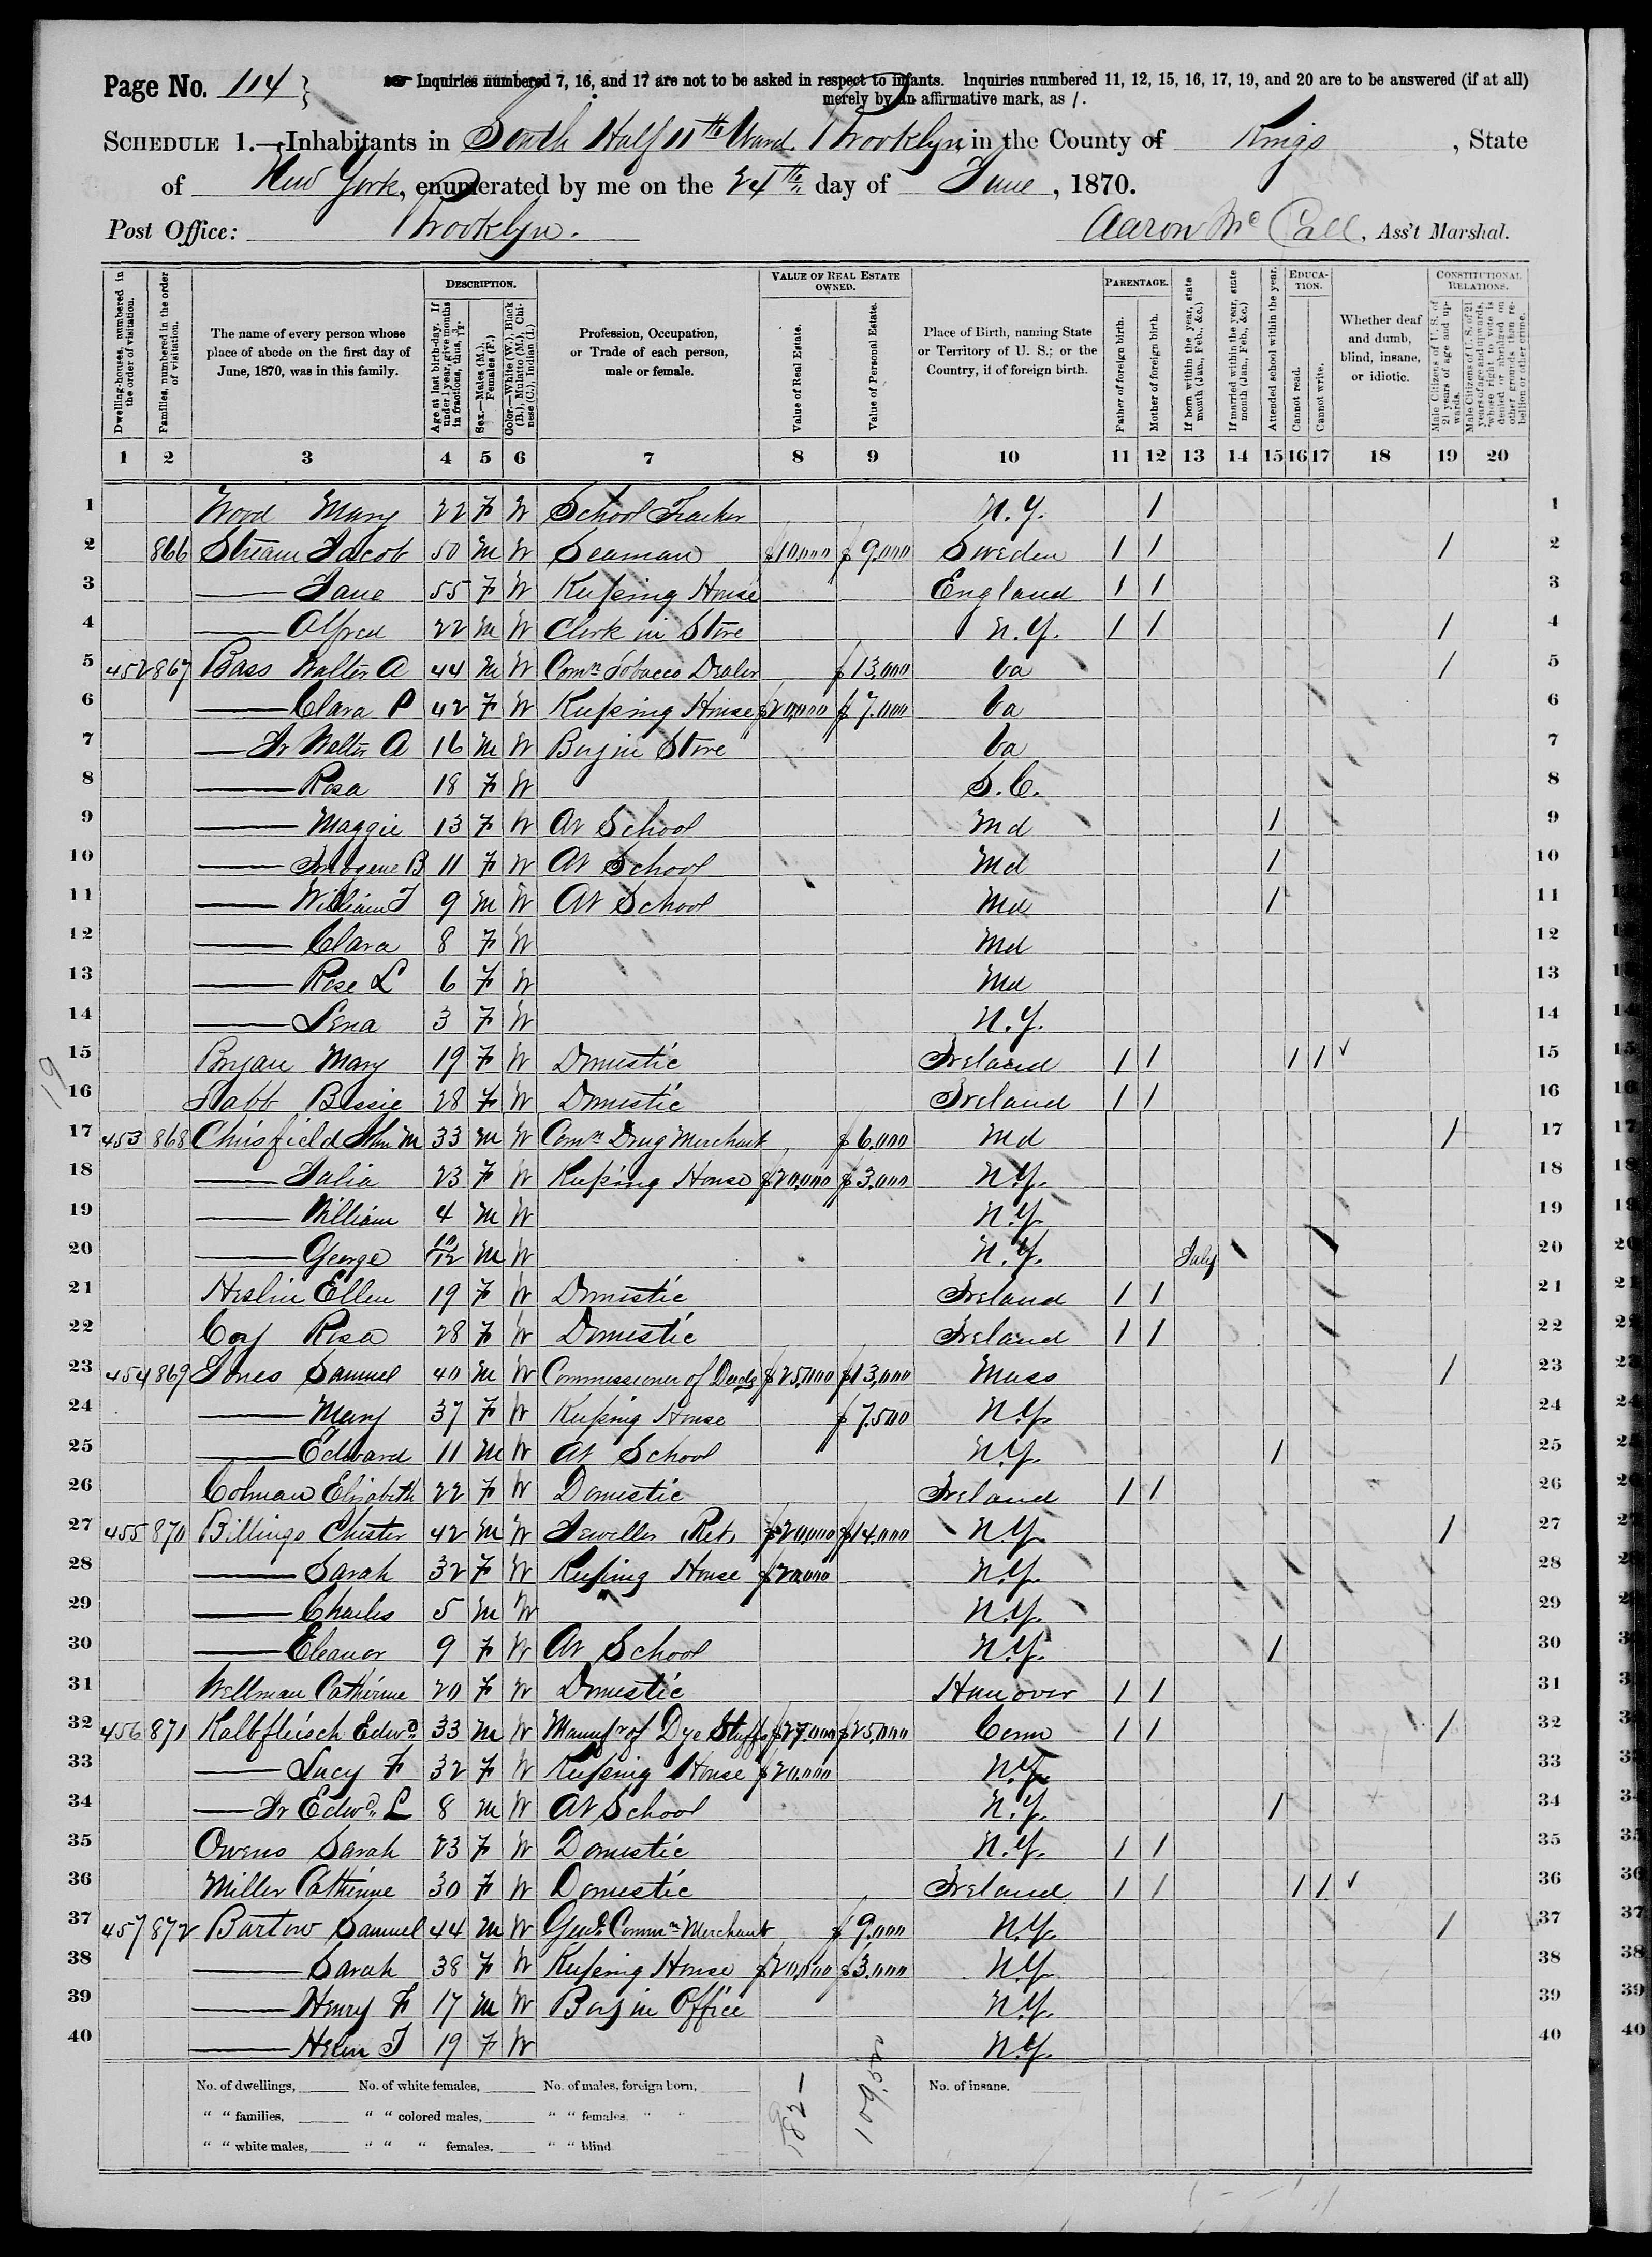 Page No. 114
Inquiries numbered 7, 16, and 17 are not to be asked in respect to infants. Inquiries numbered 11, 12, 15, 16, 17, 19, and 20 are to be answered (if at all)
merely by an affirmative mark, as /.
SCHEDULE 1.—Inhabitants in South Half 11th Ward, Brooklyn, in the County of Kings, State
of New York, enumerated by me on the 24th day of June, 1870.
Post Office: Brooklyn. Aaron McCall, Ass't Marshal.
DESCRIPTION. VALUE OF REAL ESTATE OWNED. PARENTAGE. EDUCATION. CONSTITUTIONAL RELATIONS.
Dwelling-houses, numbered in the order of visitation.
Families, numbered in the order of visitation.
The name of every person whose place of abode on the first day of June, 1870, was in this family.
Age at last birth-day. If under 1 year, give months in fractions, thus, 3/12.
Sex.—Males (M.), Females (F.)
Color.—White (W.), Black (B.), Mulatto (M.), Chinese (C.), Indian (I.)
Profession, Occupation, or Trade of each person, male or female.
Value of Real Estate.
Value of Personal Estate.
Place of Birth, naming State or Territory of U. S.; or the Country, if of foreign birth.
Father of foreign birth.
Mother of foreign birth.
If born within the year, state month (Jan., Feb., &c.)
If married within the year, state month (Jan., Feb., &c.)
Attended school within the year.
Cannot read.
Cannot write.
Whether deaf and dumb, blind, insane, or idiotic.
Male Citizens of U. S. of 21 years of age and upwards.
Male Citizens of U. S. of 21 years of age and upwards, whose right to vote is denied or abridged on other grounds than rebellion or other crime.
1 2 3 4 5 6 7 8 9 10 11 12 13 14 15 16 17 18 19 20
1 Wood Mary 22 F W School Teacher N.Y. 1 1
2 866 Stream Jacob 50 M W Seaman $10,000 $9,000 Sweden 1 1 1 2
3 —— Jane 55 F W Keeping House England 1 1 3
4 —— Alfred 22 M W Clerk in Store N.Y. 1 1 1 4
5 452 867 Bass Walter A 44 M W Comn Tobacco Dealer $13,000 Va 1 5
6 —— Clara P 42 F W Keeping House $20,000 $7,000 Va 6
7 —— Jr Walter A 16 M W Boy in Store Va 7
8 —— Rosa 18 F W S.C. 8
9 —— Maggie 13 F W At School Md 1 9
10 —— Imogene B 11 F W At School Md 1 10
11 —— William T 9 M W At School Md 1 11
12 —— Clara 8 F W Md 12
13 —— Rose L 6 F W Md 13
14 —— Lena 3 F W N.Y. 14
15 Bryan Mary 19 F W Domestic Ireland 1 1 1 1 ✓ 15
16 Bessie 28 F W Domestic Ireland 1 1 16
17 453 868 John M 33 M W Comn Drug Merchant $6,000 Md 1 17
18 —— Julia 23 F W Keeping House $20,000 $3,000 N.Y. 18
19 —— William 4 M W N.Y. 19
20 —— George 10/12 M W N.Y. July 20
21 Heslin Ellen 19 F W Domestic Ireland 1 1 21
22 Coy Rosa 28 F W Domestic Ireland 1 1 22
23 454 869 Jones Samuel 40 M W Commissioner of Deeds $25,000 $13,000 Mass 1 23
24 —— Mary 37 F W Keeping House $7,500 N.Y. 24
25 —— Edward 11 M W At School N.Y. 1 25
26 Colman Elizabeth 22 F W Domestic Ireland 1 1 26
27 455 870 Billings Chester 42 M W Jeweller Ret. $20,000 $14,000 N.Y. 1 27
28 —— Sarah 32 F W Keeping House $20,000 N.Y. 28
29 —— Charles 5 M W N.Y. 29
30 —— Eleanor 9 F W At School N.Y. 1 30
31 Wellman Catherine 20 F W Domestic Hanover 1 1 31
32 456 871 Kalbfleisch Edwd. 33 M W Manufr of Dye Stuffs $27,000 $25,000 Conn 1 1 1 32
33 —— Lucy F 32 F W Keeping House $20,000 N.Y. 33
34 —— Jr Edwd. L 8 M W At School N.Y. 1 34
35 Owens Sarah 23 F W Domestic N.Y. 1 1 35
36 Miller Catherine 30 F W Domestic Ireland 1 1 1 1 ✓ 36
37 457 872 Bartow Samuel 44 M W Genl. Commn Merchant $9,000 N.Y. 1 37
38 —— Sarah 38 F W Keeping House $20,000 $3,000 N.Y. 38
39 —— Henry F 17 M W Boy in Office N.Y. 39
40 —— Helen T 19 F W N.Y. 40
No. of dwellings, No. of white females, No. of males, foreign born, No. of insane.
" " families, " " colored males, " " females, " "
" " white males, " " " females, " " blind.
19